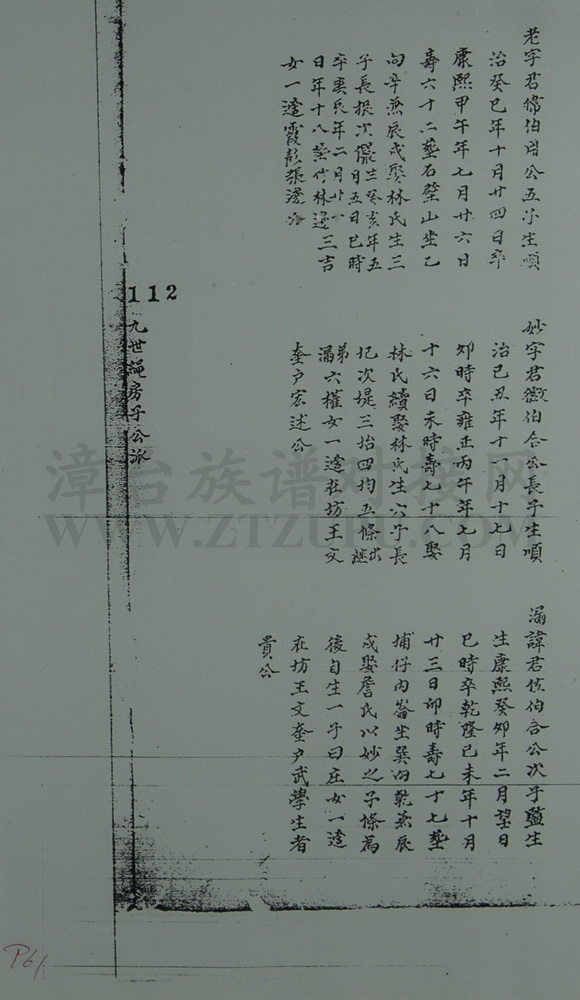 老字君偉伯因公五子生順
治癸巳年十月廿四日卒
康熙甲午年七月廿六日
壽六十二塟石壁山坐乙
向辛兼辰戌娶林氏生三
子長振次儼生癸亥年五
月五日巳時
卒庚辰年二月廿
日年十八塟竹林邊三吉
女一適霞彭張
妙字君徽伯合公長子生順
治己丑年十一月十七日
卯時卒雍正丙午年七月
十六日未時壽七十八娶
林氏續娶林氏生六子長
圯次堤三抬四均五條出繼
弟漏六權女一適在坊王文
奎户宏述公
漏諱君佐伯合公次子監生
生康熙癸卯年二月望日
巳時卒乾隆己未年十月
廿三日卯時壽七十七塟
埔仔内崙坐巽向乾兼辰
戌娶詹氏以妙之子條為
後自生一子曰庄女一適
在坊王文奎户武學生者
貴公
112
九世繩房子公派
漳台族谱对接网
WWW.ZTZUPU.COM
P61